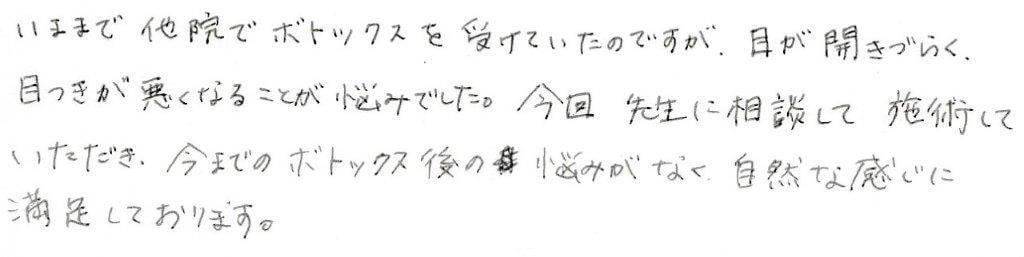 いままで 他院で ボトックスを 受けていたのですが、目が 開きづらく、
目つきが 悪くなることが 悩みでした。 今回 先生に相談して 施術して
いただき、今までの ボトックス後の 悩みがなく、自然な感じに
満足しております。